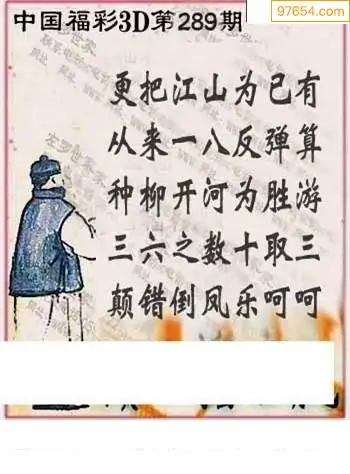 97654.com
中国福彩3D第289期
更把江山为己有
从来一八反弹算
种柳开河为胜游
三六之数十取三
颠错倒凤乐呵呵